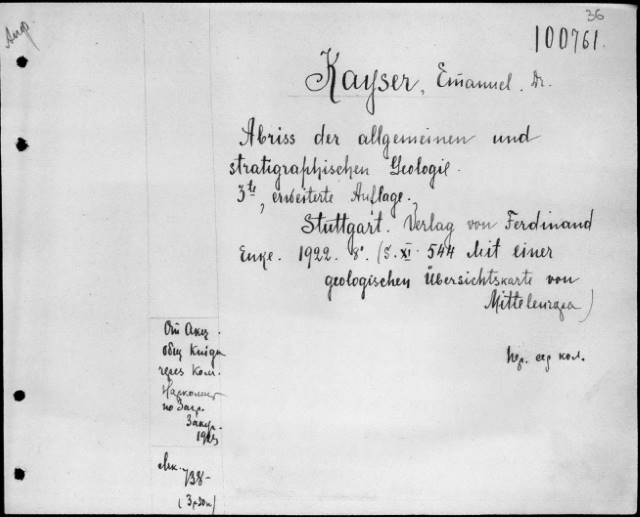 36
100761.
Kayser, Emanuel. Dr.
Abriss der allgemeinen und
stratigraphischen Geologie.
3te, erweiterte Auflage.,
Stuttgart. Verlag von Ferdinand
Enke. 1922. 8°. (S. XI 544 Mit einer
geologischen Übersichtskarte von
Mitteleuropa)
От Акц.
общ Книга
через Ком.
по Загр.
Закуп.
1923
738-